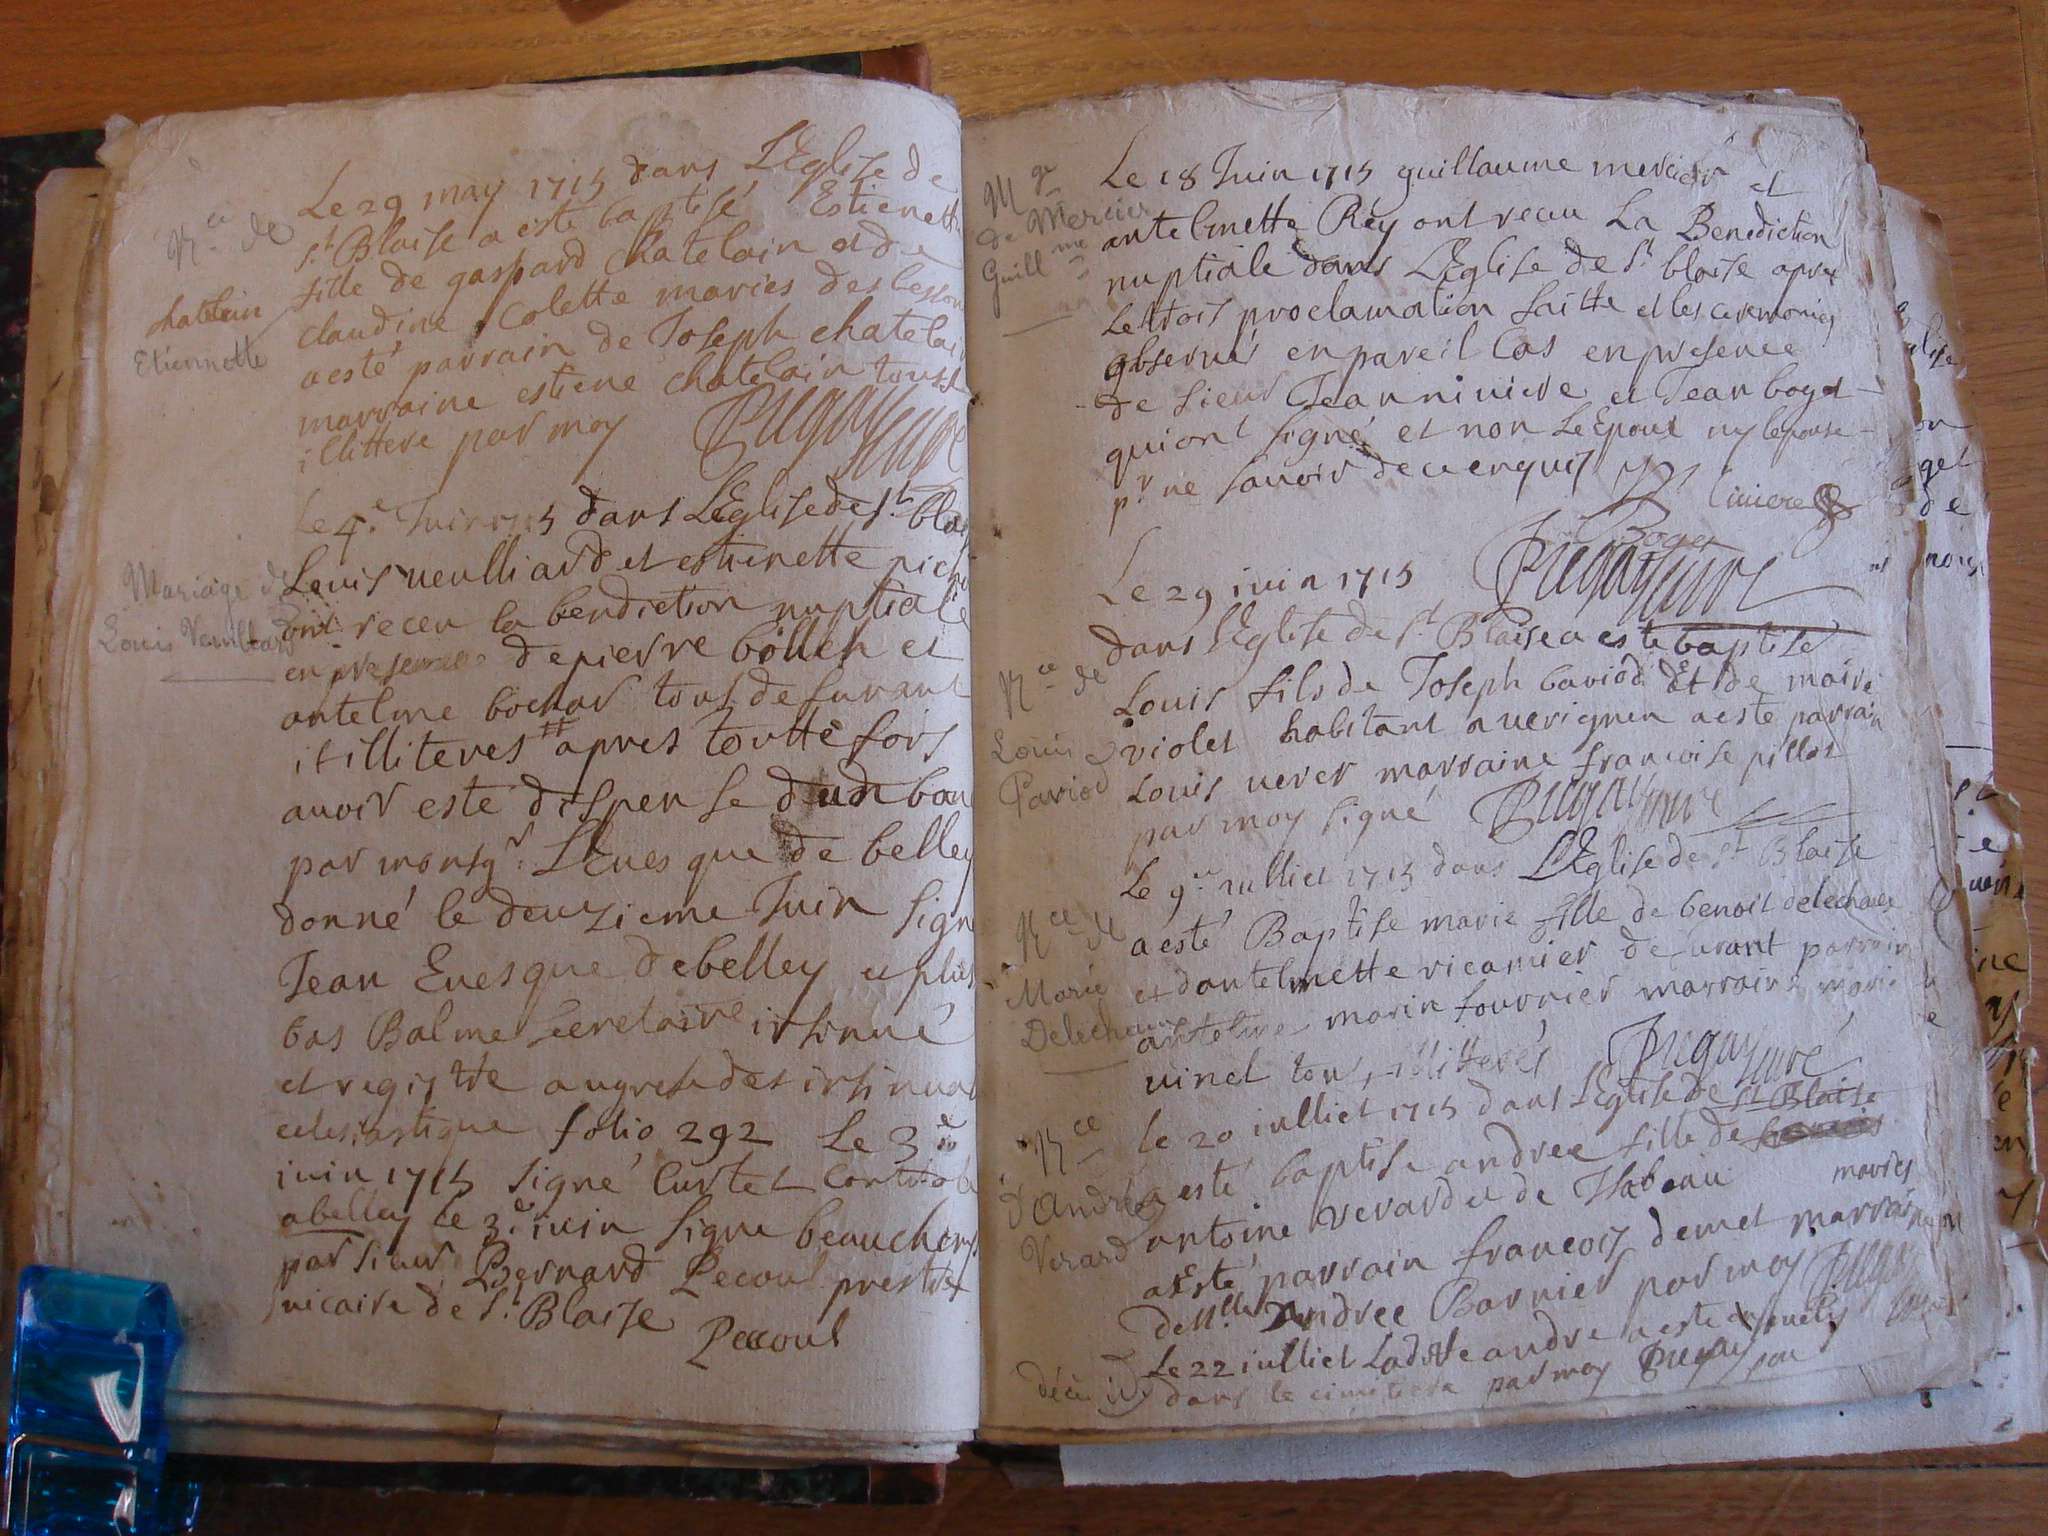 Le 29 may 1715 dans L'Eglise de
st Blaise a este baptisé Estienette
fille de gaspard chatelain et de
claudine Colette maries des lesson
a esté parrain de Joseph chatelain
marraine estiene chatelain tous
illittere par moy
Nce de
chatelain
Etiennette
Le 4e Juin 1715 dans L'Eglise de st blaise
Louis veulliard et estienette
ont receu la bendiction nuptiale
en presence de pierre bollen et
antelme bochar tous de furant
et illiteres apres toutte fois
avoir este dispense d'un ban
par monsgr L'Evesque de belley
donné le deuzieme Juin signé
Jean Evesque de belley et plus
bas Balme secretaire insinué
et registre au grefe des insinuat
eclesiastique folio 292 Le 3e
juin 1715 signé Curtet Controlé
a belley le 3e juin signe beauchemp
par sieur Bernard Pecoul prestre
vicaire de st Blaise
Pecoul
Mariage de
Louis
Le 18 Juin 1715 guillaume mercier et
antelmette Rey ont receu La Benediction
nuptiale dans L'Eglise de st blaise apres
Le trois proclamation faitte et les ceremonies
observés en pareil Cas en presence
de sieur Jean niviere et Jean boget
qui ont signé et non Le Epoux ny lepouse
pr ne savoir de ce enquis
niviere
Boget
Mge
de Mercier
Guillme
Le 29 iuin 1715
dans L'Eglise de st Blaise a este baptisé
Louis fils de Joseph bariod Et de marie
violet habitant a verignin a esté parrain
Louis veret marraine francoise pillot
par moy signé
Nce de
Louis
Pariod
Le 9e iulliet 1715 dans L'Eglise de st Blaise
a esté Baptise marie fille de benoit delechaux
et dantelmette ricamier de furant parrain
antelme marin fournier marraine marie
vinet tous illitterés
Nce de
Marie
Delechaux
Le 20 iulliet 1715 dans L'Eglise de st Blaise
a esté baptise andree fille de
antoine verard et de Isabeau maries
a esté parrain francois demet marraine
demlle Andree Barnier par moy
Nce
d'Andrée
Verard
Le 22 iulliet Laditte andre a este
dans le cimitiere par moy